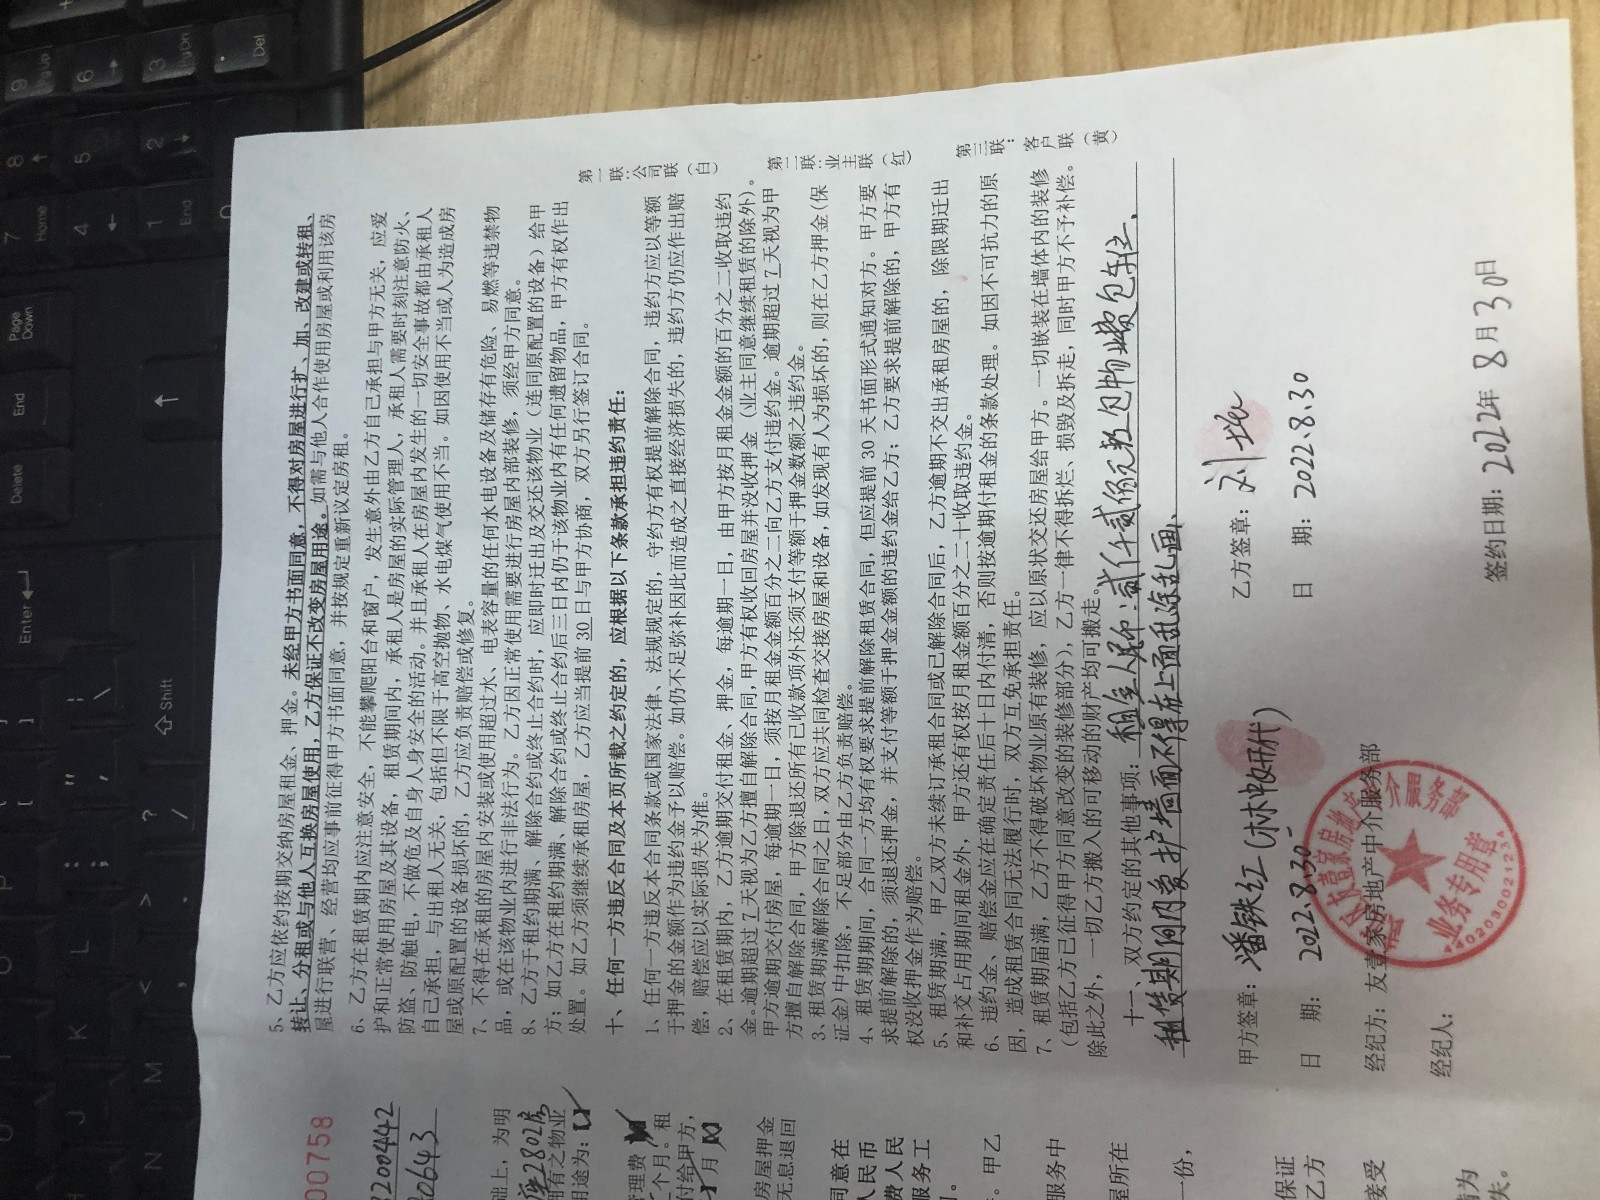 5、乙方应依约按期交纳房屋租金、押金。未经甲方书面同意，不得对房屋进行扩、加、改建或转租、
转让、分租或与他人互换房屋使用，乙方保证不改变房屋用途。如需与他人合作使用房屋或利用该房
屋进行联营、经营均应事前征得甲方书面同意，并按规定重新议定房租。
6、乙方在租赁期内应注意安全，不能攀爬阳台和窗户，发生意外由乙方自己承担与甲方无关，应爱
护和正常使用房屋及其设备，租赁期间内，承租人是房屋的实际管理人，承租人需要时刻注意防火、
防盗、防触电，不做危及自身人身安全的活动。并且承租人在房屋内发生的一切安全事故都由承租人
自己承担，与出租人无关，包括但不限于高空抛物、水电煤气使用不当。如因使用不当或人为造成房
屋或原配置的设备损坏的，乙方应负责赔偿或修复。
7、不得在承租的房屋内安装或使用超过水、电表容量的任何水电设备及储存有危险、易燃等违禁物
品，或在该物业内进行非法行为。乙方因正常使用需要进行房屋内部装修，须经甲方同意。
8、乙方于租约期满、解除合约或终止合约时，应即时迁出及交还该物业（连同原配置的设备）给甲
方；如乙方在租约期满、解除合约或终止合约后三日内仍于该物业内有任何遗留物品，甲方有权作出
处置。如乙方须继续承租房屋，乙方应当提前 30 日与甲方协商，双方另行签订合同。
十、任何一方违反合同及本页所载之约定的，应根据以下条款承担违约责任：
1、任何一方违反本合同条款或国家法律、法规规定的，守约方有权提前解除合同，违约方应以等额
于押金的金额作为违约金予以赔偿。如仍不足弥补因此而造成之直接经济损失的，违约方仍应作出赔
偿，赔偿应以实际损失为准。
2、在租赁期内，乙方逾期交付租金、押金，每逾期一日，由甲方按月租金金额的百分之二收取违约
金。逾期超过 7 天视为乙方擅自解除合同，甲方有权收回房屋并没收押金（业主同意继续租赁的除外）。
甲方逾期交付房屋，每逾期一日，须按月租金金额百分之二向乙方支付违约金。逾期超过 7 天视为甲
方擅自解除合同，甲方除退还所有已收款项外还须支付等额于押金数额之违约金。
3、租赁期满解除合同之日，双方应共同检查交接房屋和设备，如发现有人为损坏的，则在乙方押金（保
证金）中扣除，不足部分由乙方负责赔偿。
4、租赁期期间，合同一方均有权要求提前解除租赁合同，但应提前 30 天书面形式通知对方。甲方要
求提前解除的，须退还押金，并支付等额于押金金额的违约金给乙方；乙方要求提前解除的，甲方有
权没收押金作为赔偿。
5、租赁期满，甲乙双方未续订承租合同或已解除合同后，乙方逾期不交出承租房屋的，除限期迁出
和补交占用期间租金外，甲方还有权按月租金额百分之二十收取违约金。
6、违约金、赔偿金应在确定责任后十日内付清，否则按逾期付租金的条款处理。如因不可抗力的原
因，造成租赁合同无法履行时，双方互免承担责任。
7、租赁期届满，乙方不得破坏物业原有装修，应以原状交还房屋给甲方。一切嵌装在墙体内的装修
（包括乙方已征得甲方同意改变的装修部分），乙方一律不得拆烂、损毁及拆走，同时甲方不予补偿。
除此之外，一切乙方搬入的可移动的财产均可搬走。
十一、双方约定的其他事项：租金人民币：贰仟贰佰元整包物业费包车位，
租赁期间内爱护墙面不得在上面乱涂乱画、
甲方签章：潘铁红（林帕妍代）
乙方签章：刘
日 期：2022.8.30
日 期：2022.8.30
经纪方：友壹家房地产中介服务部
经纪人：
签约日期：2022年 8月 30日
友壹家房地产中介服务部
业务专用章
第一联：公司联（白）
第二联：业主联（红）
第三联：客户联（黄）
00758
8200442
20643
础上，为明
座2802房
拥有之物业
用途为：
管理费
个月。租
付给甲方，
月
房屋押金
无息退回
同意在
人民币
费人民
服务工
甲乙
服务中
屋所在
一份，
保证
乙方
接受
为
失。
Delete
End
Page Down
Enter
Shift
7 Home
8
9 PgUp
4
5
6
1 End
2
3 PgDn
Del
J
K
L
N
M